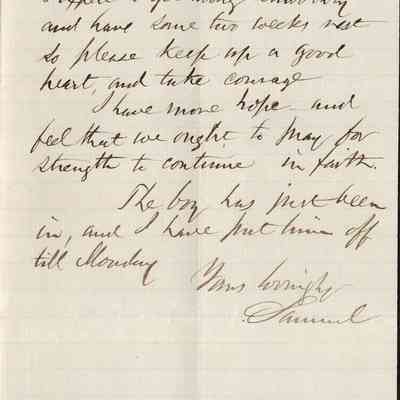 and have some two weeks rest
so please keep up a good
heart, and take courage
I have more hope and
feel that we ought to pray for
strength to continue in faith.
The boy has just been
in, and I have put him off
till Monday
Yours lovingly
Samuel